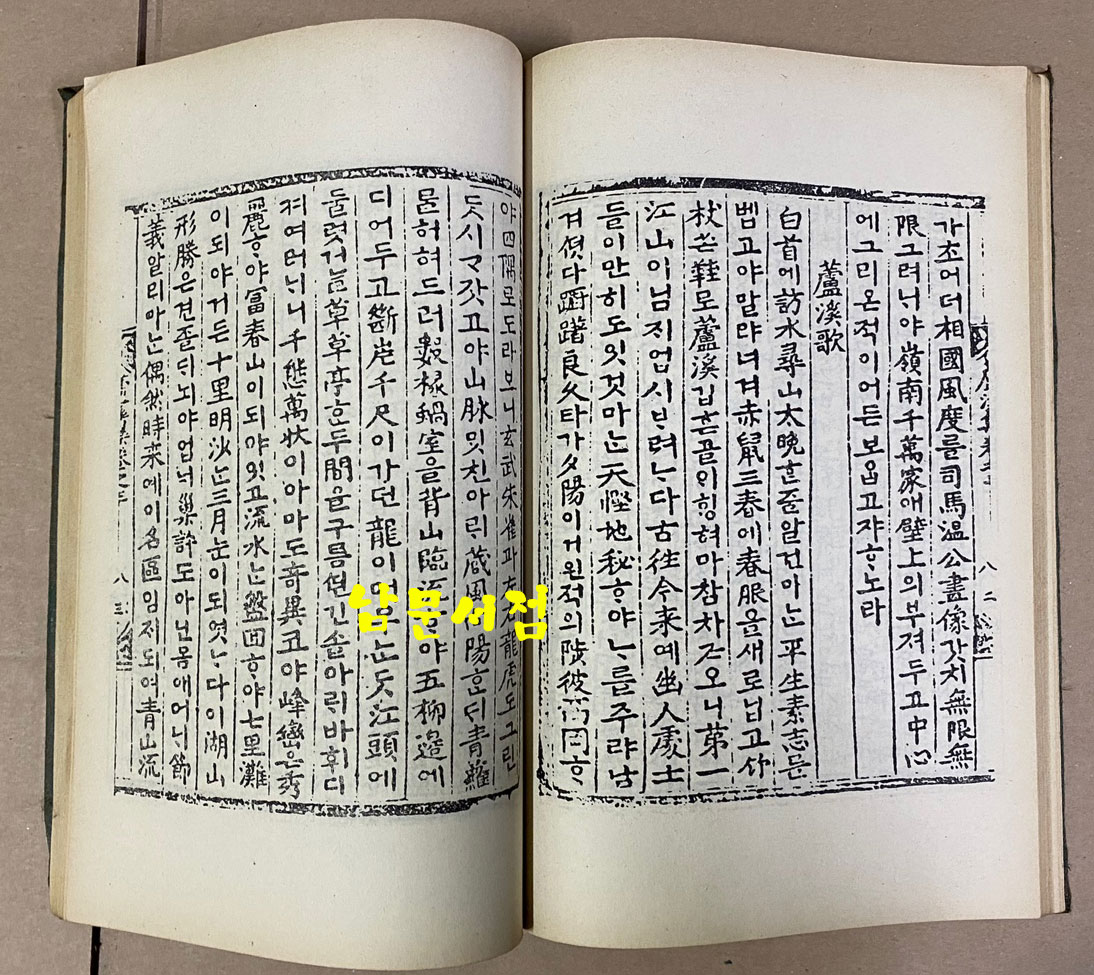 가죠어더相國風度를司馬溫公畵像갓치無限無
限그려ᄂᆡ야嶺南千萬家애壁上의부쳐두고中心
에그리온적이어든보ᄋᆞᆸ고쟈ᄒᆞ노라
蘆溪歌
白首에訪水尋山太晩ᄒᆞᆫ줄알건마ᄂᆞᆫ平生素志ᄅᆞᆯ
벱고야말랴녀겨赤鼠三春에春服을새로닙고竹
杖芒鞋로蘆溪깁ᄒᆞᆫ골ᄋᆡ힝혀마참차ᄌᆞ오니第一
江山이님ᄌᆡ업시ᄇᆞ려ᄂᆞ다古往今來예幽人處士
들이만히도잇것마ᄂᆞᆫ天慳地秘ᄒᆞ야ᄂᆞ를주랴남
겨ᄯᅥᆺ다躊躇良久타가夕陽이거읜적의陟彼高岡ᄒᆞ
야四隅로도라보니玄武朱雀과左右龍虎도그린
ᄃᆞ시ᄀᆞ잣고야山脈ᄆᆡ친아ᄅᆡ藏風向陽ᄒᆞᆫᄃᆡ靑蘿
ᄅᆞᆯ허혀드러數椽蝸室을背山臨流ᄒᆞ야五柳邊에
디어두고斷崖千尺이가던龍이머무ᄂᆞᆫᄃᆞᆺ江頭에
둘렷거ᄂᆞᆯ草草亭ᄒᆞᆫ두間을구름ᄯᅴᆫ긴솔아ᄅᆡ바휘디
켜여러ᄂᆡ니千態萬狀이아마도奇異코야峰巒은秀
麗ᄒᆞ야富春山이되야잇고流水ᄂᆞᆫ盤回ᄒᆞ야七里灘
이되야거든十里明沙ᄂᆞᆫ三月눈이되엿ᄂᆞ다이湖山
形勝은견졸ᄃᆡ뇌야업ᄂᆡ巢許도아닌몸애어ᄂᆡ節
義알리마ᄂᆞᆫ偶然時來예이名區임ᄌᆡ되여靑山流
八二
八三
남문서점